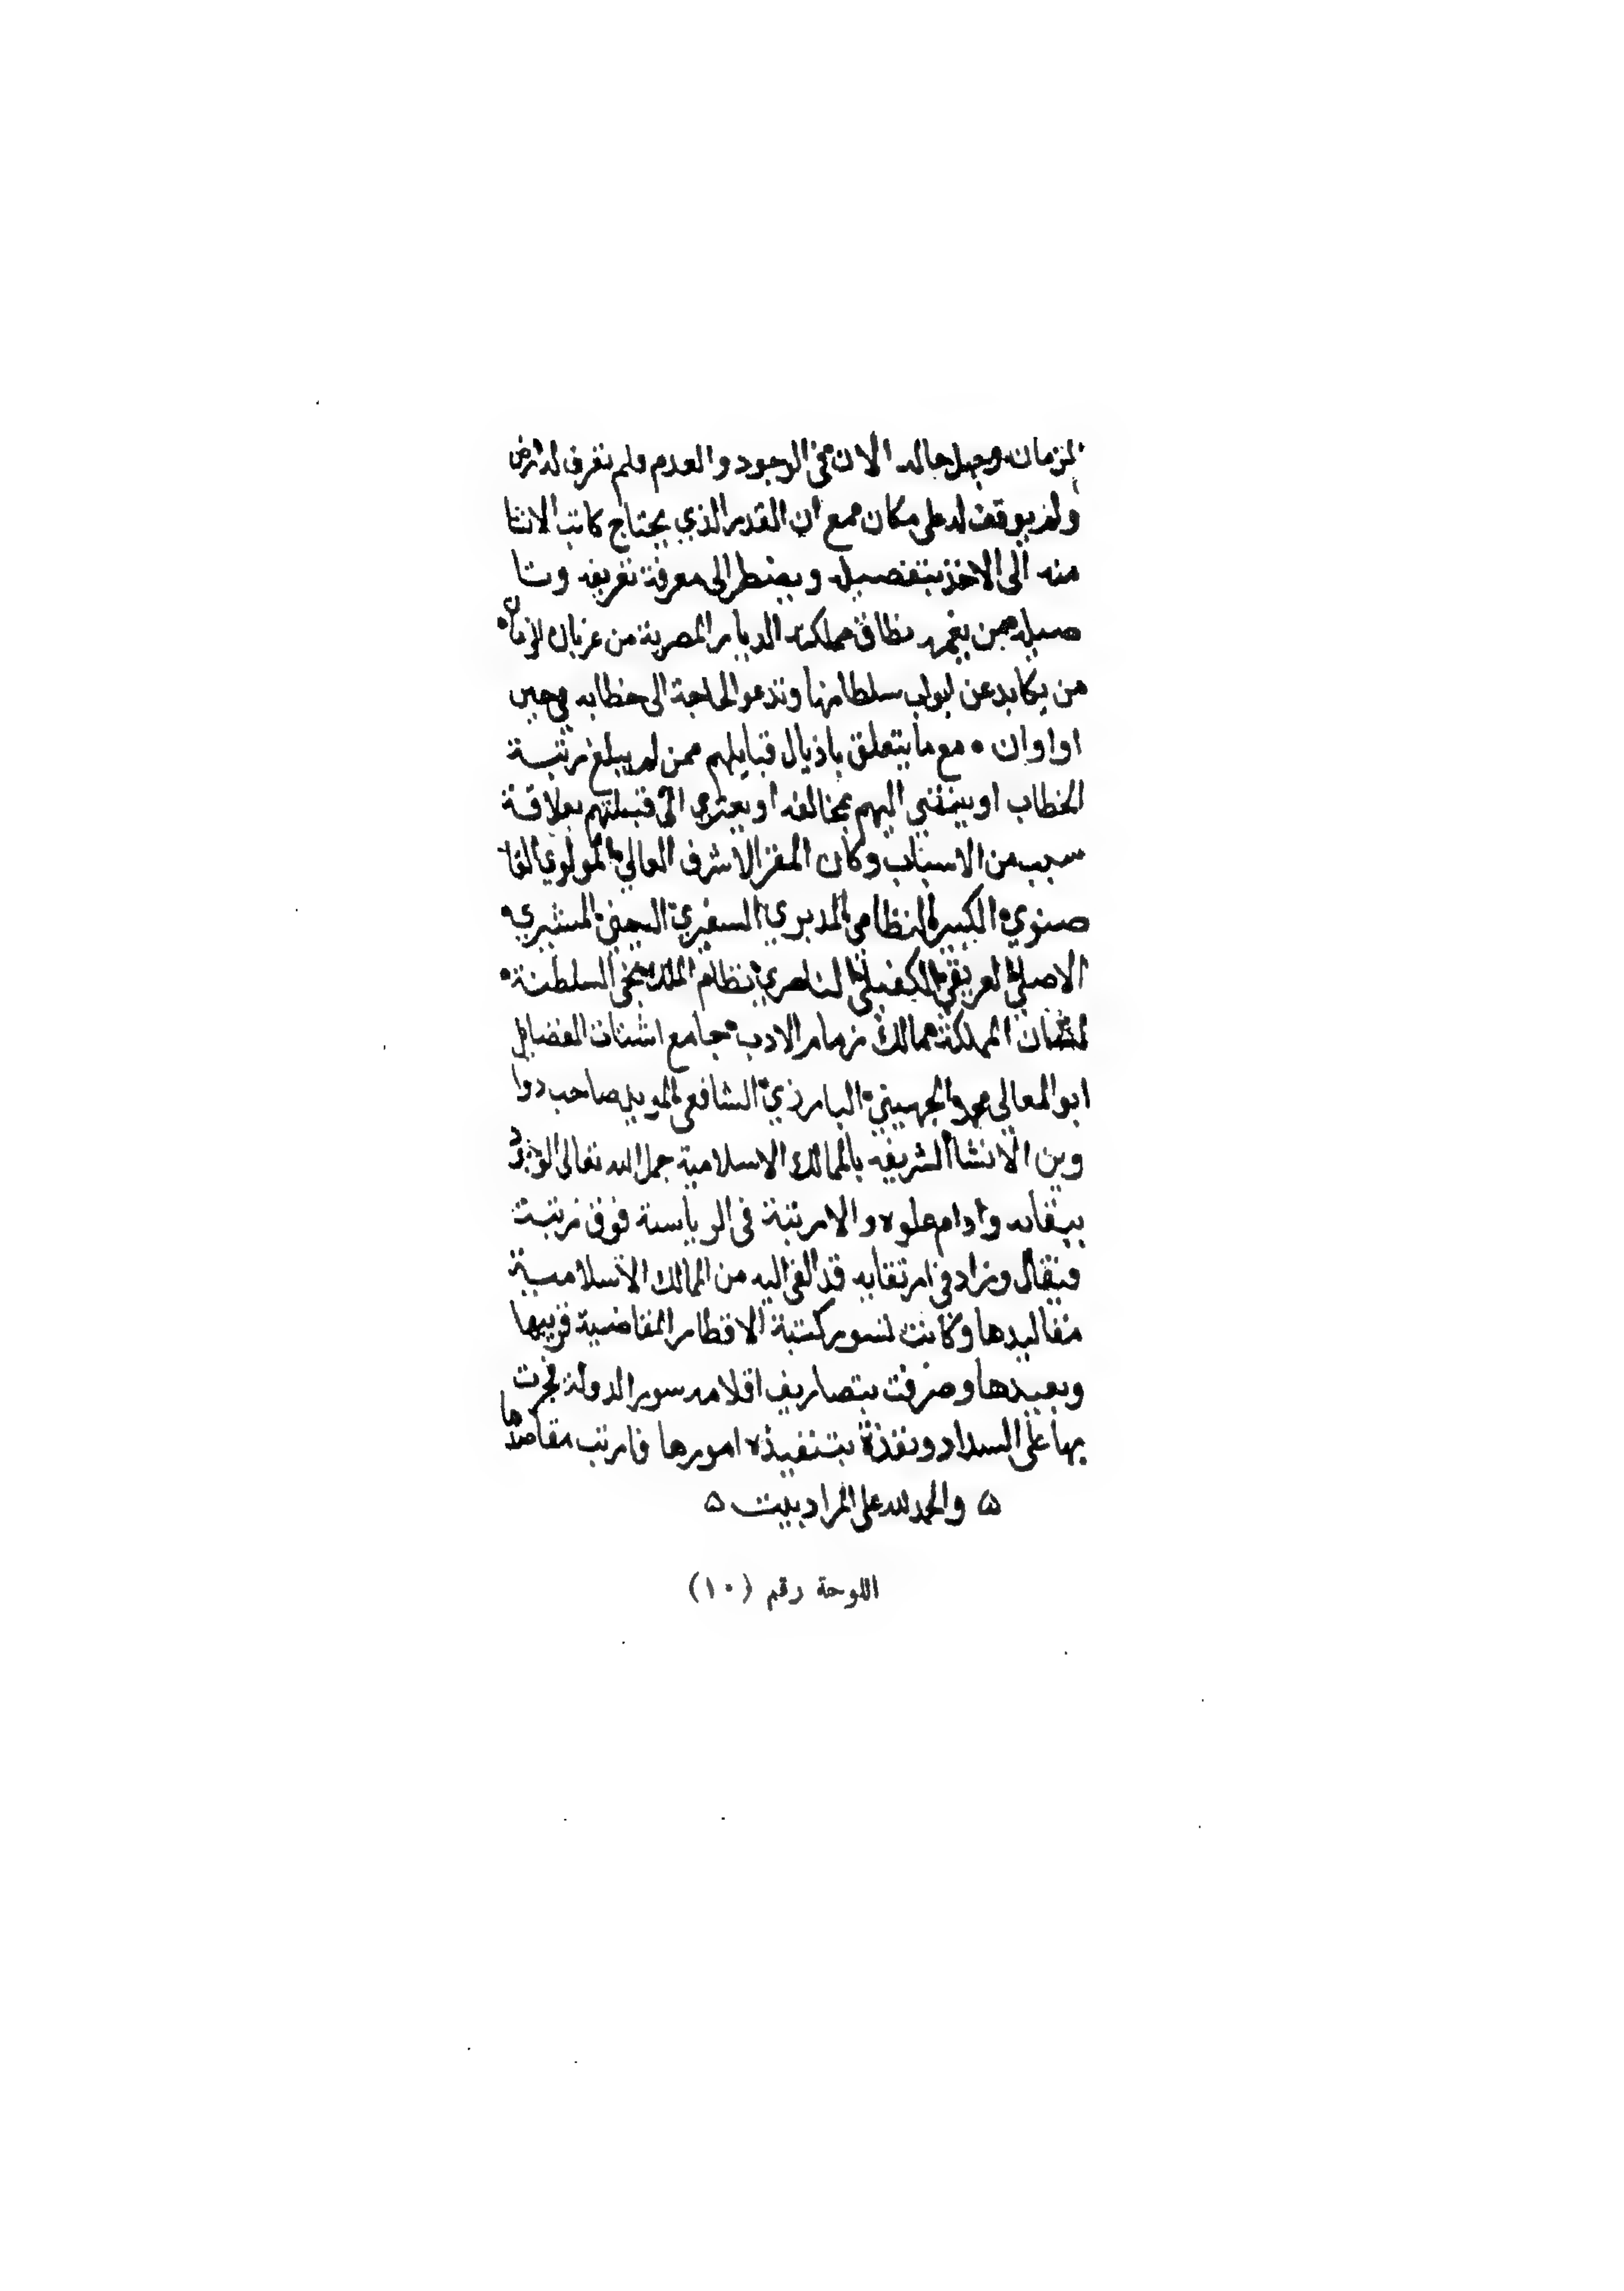 الزمان وجهل حاله الان في الوجود والعدم فلم تعرف له ارض
ولم يوقف له على مكان مع ان القدر الذي يحتاج كاتب الانشا
منه الى الاخذ بتفصيله ويضطر الى معرفة تعريفه وتا
صيله من يغمره نطاق مملكة الديار المصرية من عربان الزمان
من يكابد عن ابواب سلطانها وتدعو الحاجة الى خطابه في حين
او اوان • مع ما يتعلق باذيال قبايلهم ممن لم يبلغ رتبة
الخطاب او ينتمي اليهم بمخالفه او يعتزي الى قبيلتهم بعلاقة
سبب من الاسباب وكان المقر الاشرف العالي المولوي القا
ضوي الكبيري النظامي المدبري السفيري اليميني المشيري •
الاصيلي العريقي الكفيلي الناصري نظام الملك السلطنة •
لسان المملكة مالك زمام الادب جامع اشتات الفضايل
ابو المعالي محمد الجهيني البارزي الشافعي المويد صاحب دوا
وين الانشا الشريفه بالممالك الاسلامية جمل الله تعالى الوجود
ببقايه وادام علوه والا رتبة في الرياسة فوق رتبة
فيقال وزاد في ارتقايه قد القى اليه من الممالك الاسلامية
مقاليدها وكانت لسور كتبة الاقطار المقاضية قريبها
وبعيدها وصرفت بتصاريف اقلامه سور الدولة فجرت
بها على السداد ونفذة بتنفيذه امورها فارتب مقاصدها
ه والحمد لله على المراد بيت ه
اللوحة رقم (١٠)